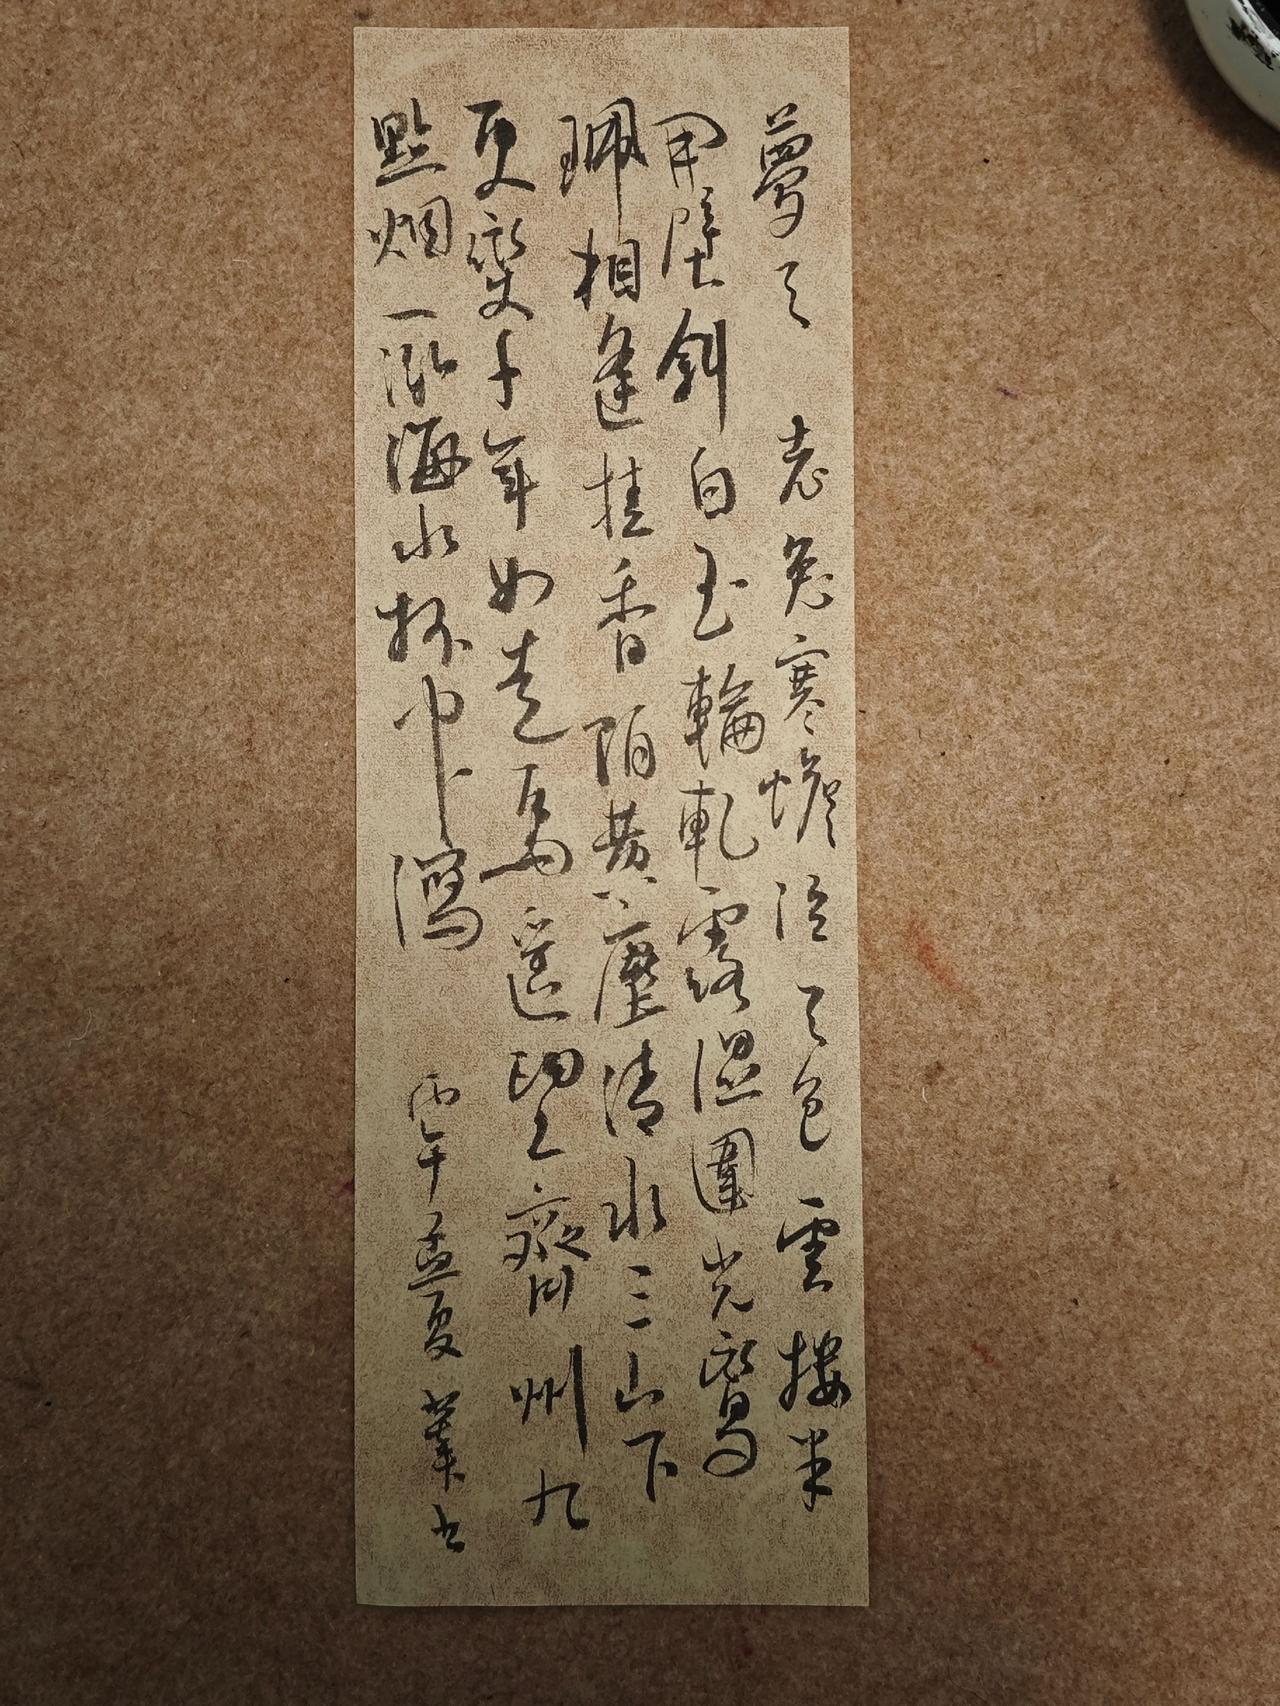 夢天 老兔寒蟾泣天色雲樓半
開壁斜白玉輪軋露濕團光鸞
珮相逢桂香陌黄塵清水三山下
更變千年如走馬遥望齊州九
點烟一泓海水杯中瀉 丙午孟夏 書